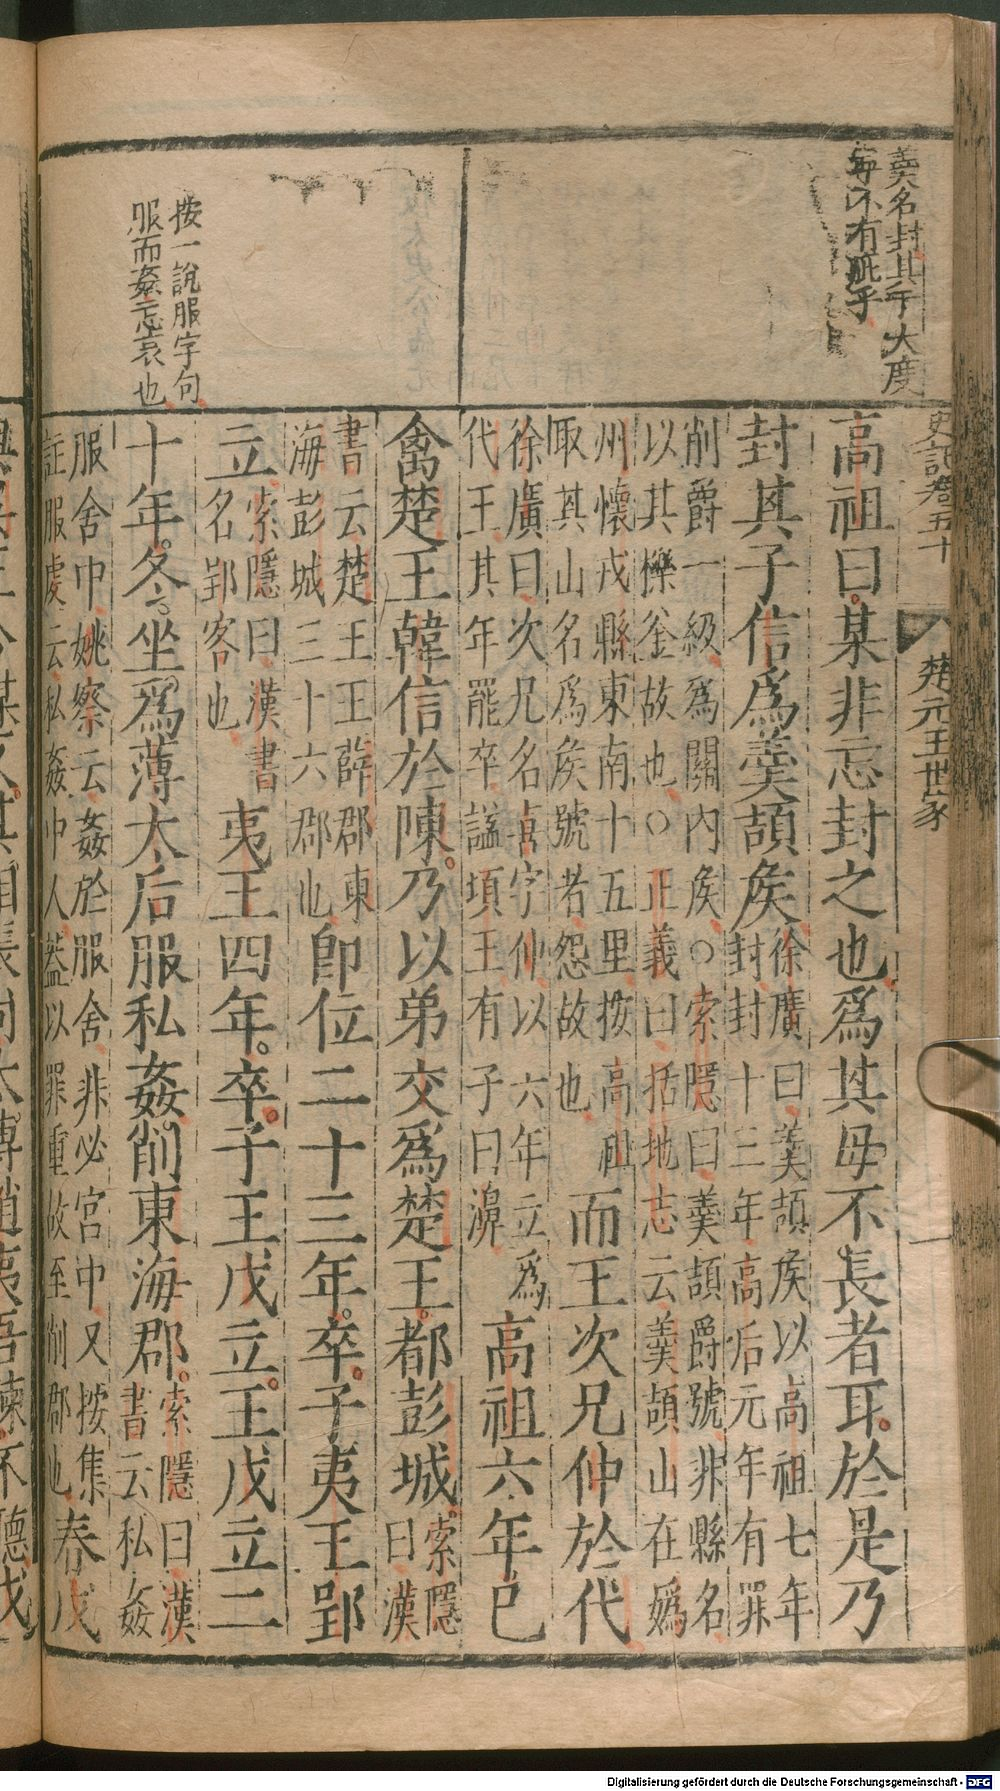 史記卷五十
楚元王世家
一
羹名封其子大度
每不有
按一說服字句
服而姦忘哀也
高祖曰某非忘封之也爲其母不長者耳於是乃
封其子信爲羹頡矦
徐廣曰羹頡矦以高祖七年
封封十三年高后元年有罪
削爵一級爲關內矦○索隱曰羹頡爵號非縣名
以其櫟釜故也○正義曰括地志云羹頡山在媯
州懷戎縣東南十五里按高祖
取其山名爲矦號者怨故也
而王次兄仲於代
徐廣曰次兄名喜字仲以六年立爲
代王其年罷卒謚頃王有子曰濞
高祖六年已
禽楚王韓信於陳乃以弟交爲楚王都彭城
索隱
曰漢
書云楚王王薛郡東
海彭城三十六郡也
卽位二十三年卒子夷王郢
立
索隱曰漢書
名郢客也
夷王四年卒子王戊立王戊立二
十年冬坐爲薄太后服私姦削東海郡
索隱曰漢
書云私姦
服舍中姚察云姦於服舍非必宮中又按集
註服虔云私姦中人蓋以罪重故至削郡也
春戊
Digitalisierung gefördert durch die Deutsche Forschungsgemeinschaft - DFG